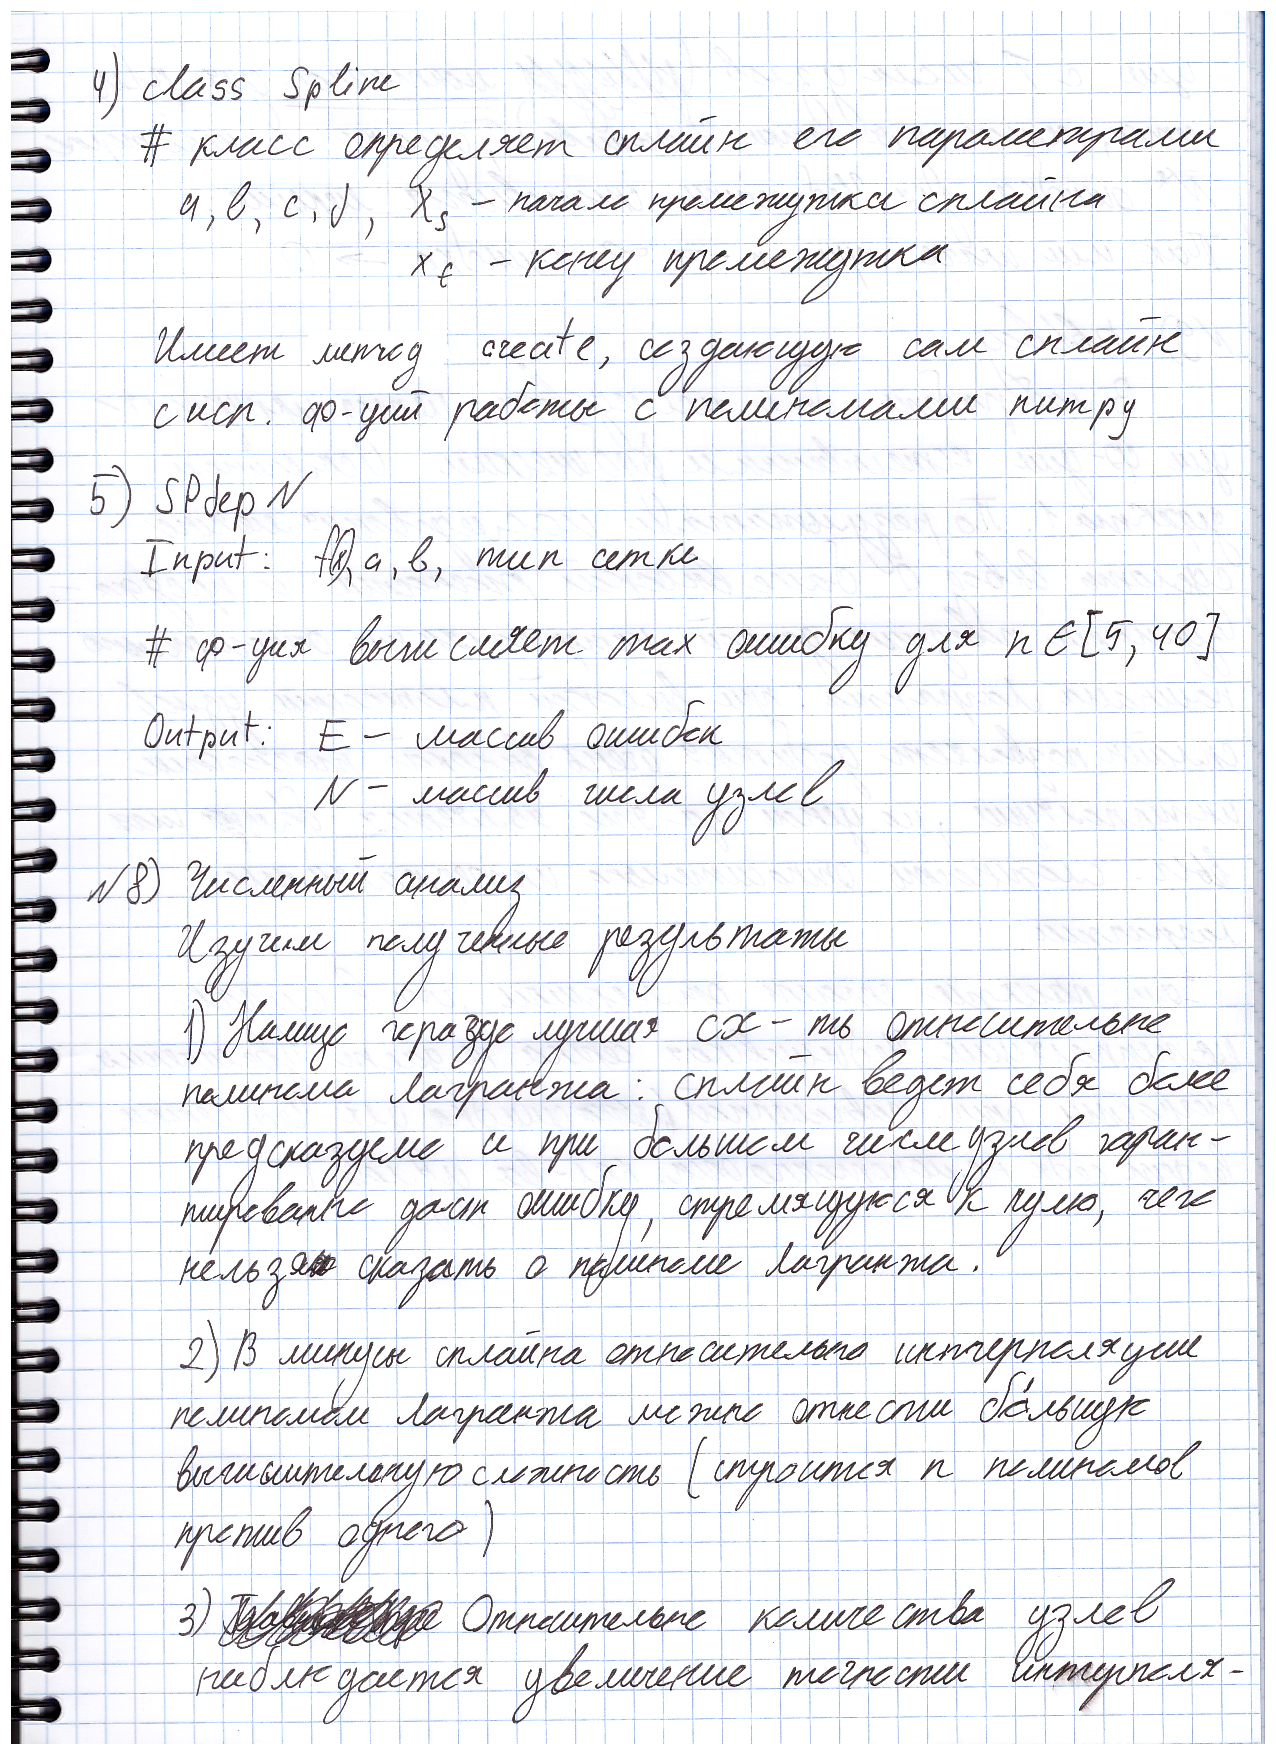 4) class Spline
# класс определяет сплайн его параметрами
a, b, c, d, x_s – начало промежутка сплайна
x_f – конец промежутка
Имеет метод create, создающую сам сплайн
с исп. ф-ций работы с полиномами питру
5) SPдерN
Input: f(x), a, b, тип сетки
# ф-ция вычисляет max ошибку для n ∈ [5, 40]
Output: E – массив ошибок
N – массив числа узлов
N8) Численный анализ
Изучим полученные результаты
1) Налицо гораздо лучшая сх-ть относительно
полинома Лагранжа: сплайн ведет себя более
предсказуемо и при большем числе узлов гаран-
тированно даст ошибку, стремящуюся к нулю, чего
нельзя сказать о полиноме Лагранжа.
2) В минусы сплайна относительно интерполяции
полиномом Лагранжа можно отнести бо́льшую
вычислительную сложность (строится n полиномов
против одного)
3) Относительно количества узлов
наблюдается увеличение точности интерполя-